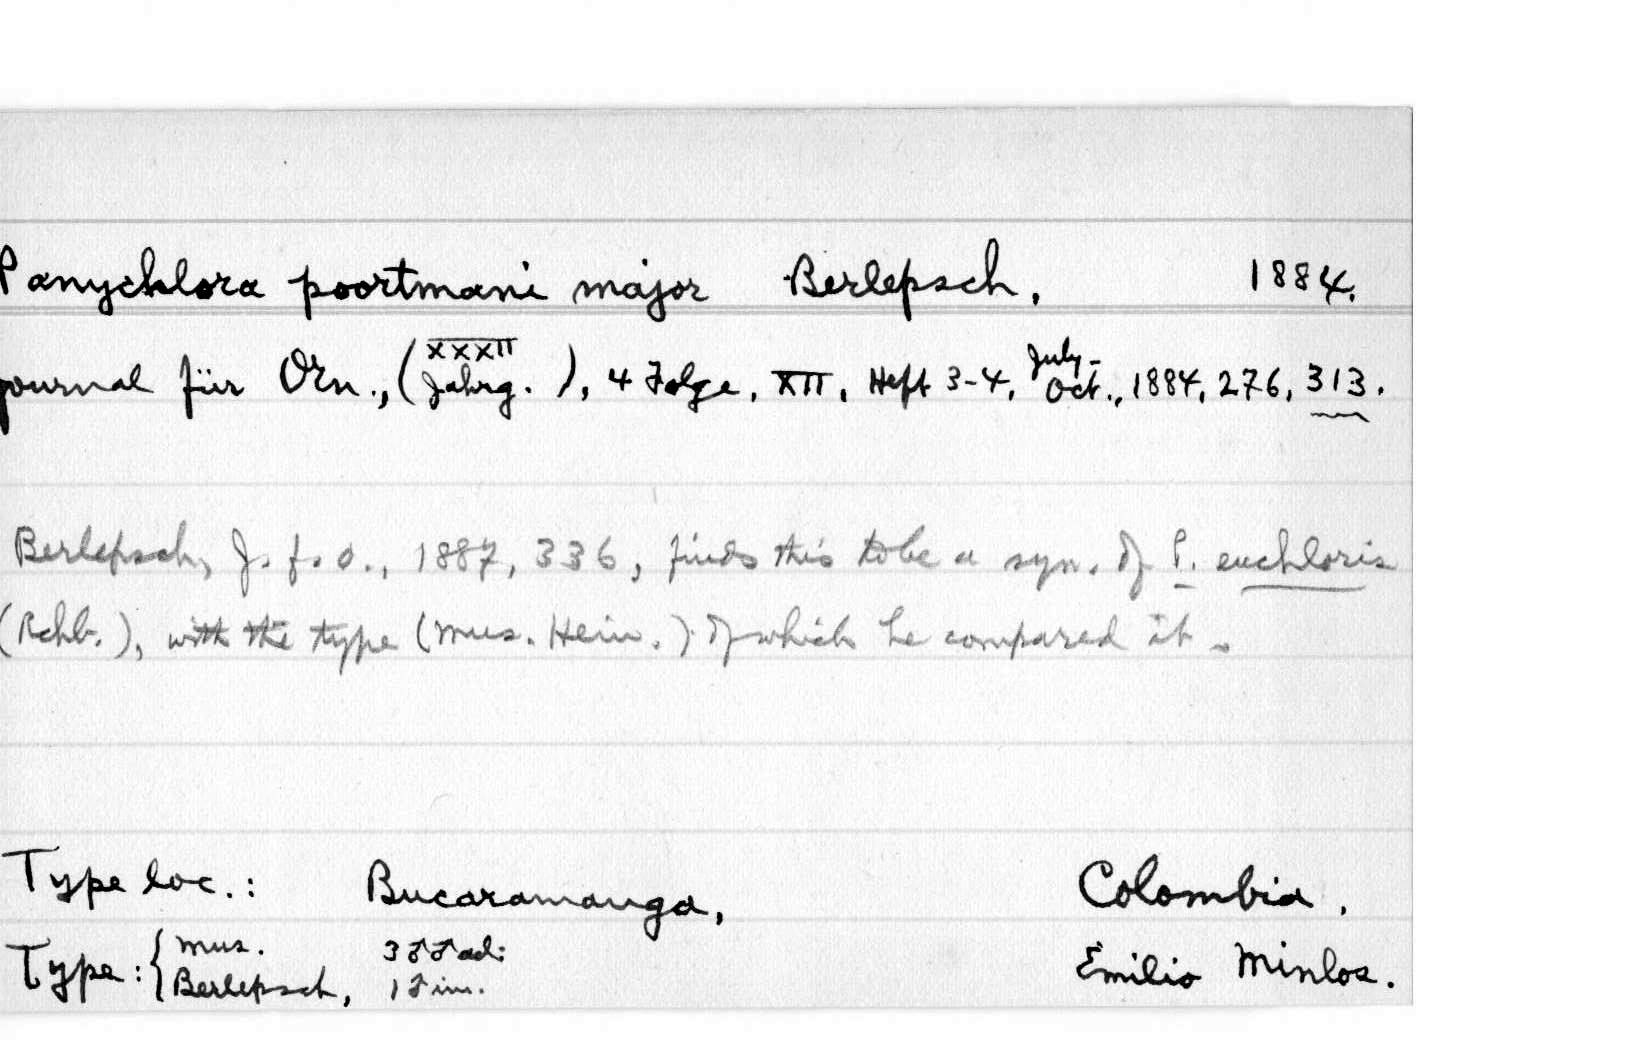 Panychlora poortmani major Berlepsch, 1884.
Journal für Orn., (XXXII Jahrg.), 4 Folge, XII, Heft 3-4, July-Oct., 1884, 276, 313.
Berlepsch, J. f. O., 1887, 336, finds this to be a syn. of P. euchloris
(Rchb.), with the type (Mus. Hein.) of which he compared it.
Type loc.: Bucaramanga, Colombia.
Type: { Mus. Berlepsch, 3 ♂♂ ad: 1 ♂ im. Emilio Minlos.